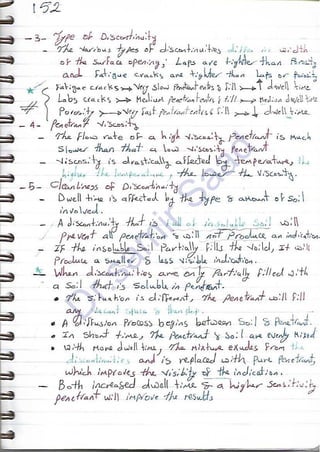 152
-3- Type of Discontinuity
- The various types of discontinuities differ in width
of the surface opening; Laps are tighter than Porosity
and Fatigue cracks are tighter than Laps or Porosity
Fatigue cracks → Very Slow Penetrant enters & fill → ↑ dwell time
# Labs cracks → Medium Penetrant enters & fill → Median dwell time
Porosity → Very fast Penetrant enters & fill → ↓ dwell time
-4- Penetrant Viscosity
- The flow rate of a high viscosity Penetrant is Much
Slower than that a low viscosity Penetrant
- Viscosity is drastically affected by temperature, the
higher the temperature, the lower the Viscosity.
-5- Cleanliness of Discontinuity
- Dwell time is affected by the type & amount of Soil
involved.
- A discontinuity that is full of insoluble Soil will
prevent all penetration & will not Produce an indication
- If the insoluble Soil Partially fills the Void, it will
Produce a smaller & less visible indication.
* When discontinuities are only Partially filled with
a Soil that is soluble in Penetrant.
• The situation is different, The penetrant will fill
any vacant space &
• A diffusion Process begins between Soil & Penetrant.
• In Short time, The Penetrant & Soil are evenly Mixed
• With More dwell time, The Mixture exudes From the
discontinuities and is replaced with Pure Penetrant,
which improves the visibility of the indication.
- Both increased dwell time & a higher Sensitivity
penetrant will improve the results